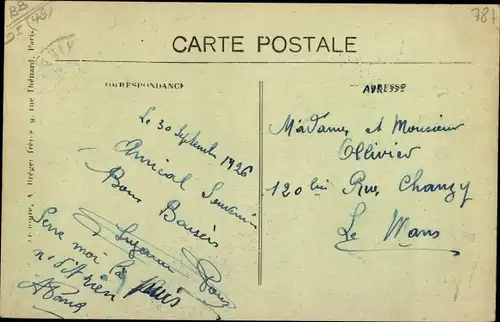 BB
(49)
78
CARTE POSTALE
CORRESPONDANCE
ADRESSE
Le 30 Septembre 1926
Amical Souvenir
Bons Baisers
Suzanne
Serre moi la
Madame et Monsieur
Ollivier
120 bis Rue Chanzy
Le Mans
frères 9, rue Thénard, Paris